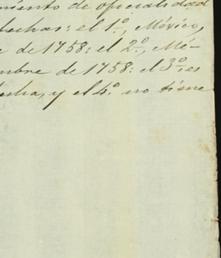 miento de oficialidad
fechas: el 1º, México,
e de 1758: el 2º, Mé-
mbre de 1758: el 3º, es
fecha, y el 4º no tiene